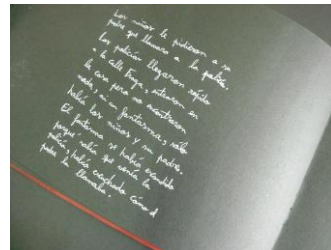 Los niños le pidieron a su
padre que llamara a la policía.
Los policías llegaron rápido
a la calle Fraga, entraron en
la casa pero no encontraron
nada, ni un fantasma, sólo
había los niños y su padre.
El fantasma se había escondido
porque sabía que venía la
policía, había escuchado cómo el
padre la llamaba.